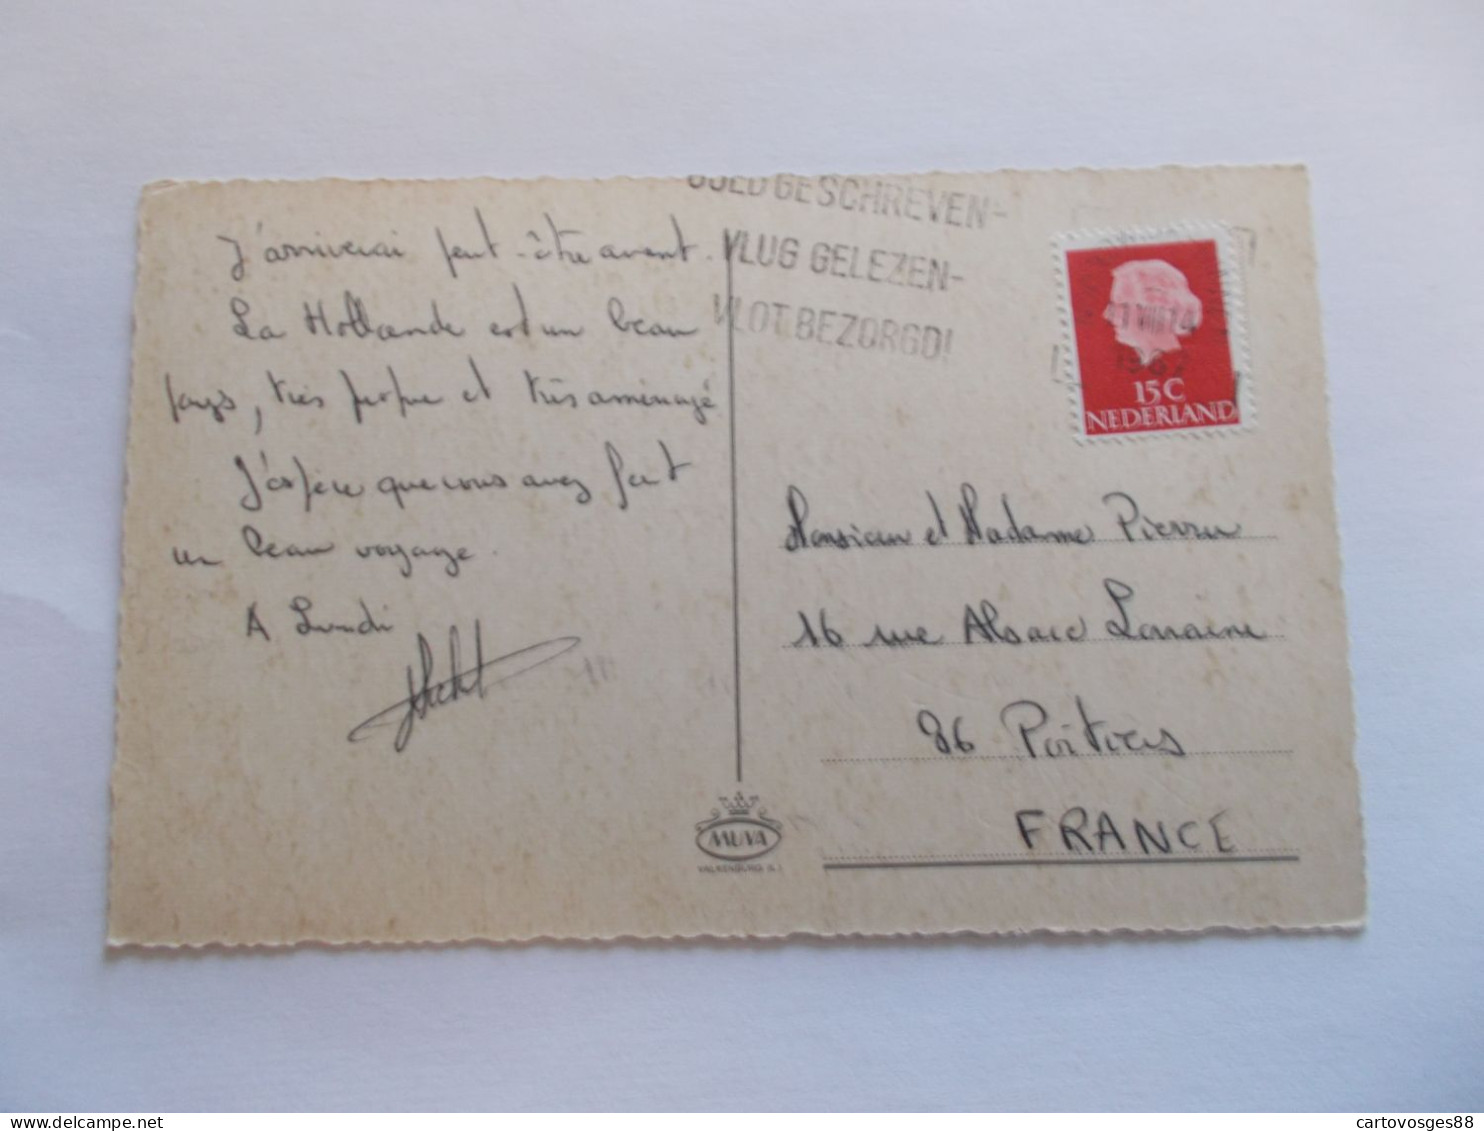 J'arriverai peut-être avant.
La Hollande est un beau
pays, très propre et très aménagé
J'espère que vous avez fait
un beau voyage.
A Lundi
GESCHREVEN-
VLUG GELEZEN-
VLOT BEZORGD!
1967
15C
NEDERLAND
Monsieur et Madame
16 rue Alsace Lorraine
86 Poitiers
FRANCE
MUVA
VALKENBURG
cartovosges88